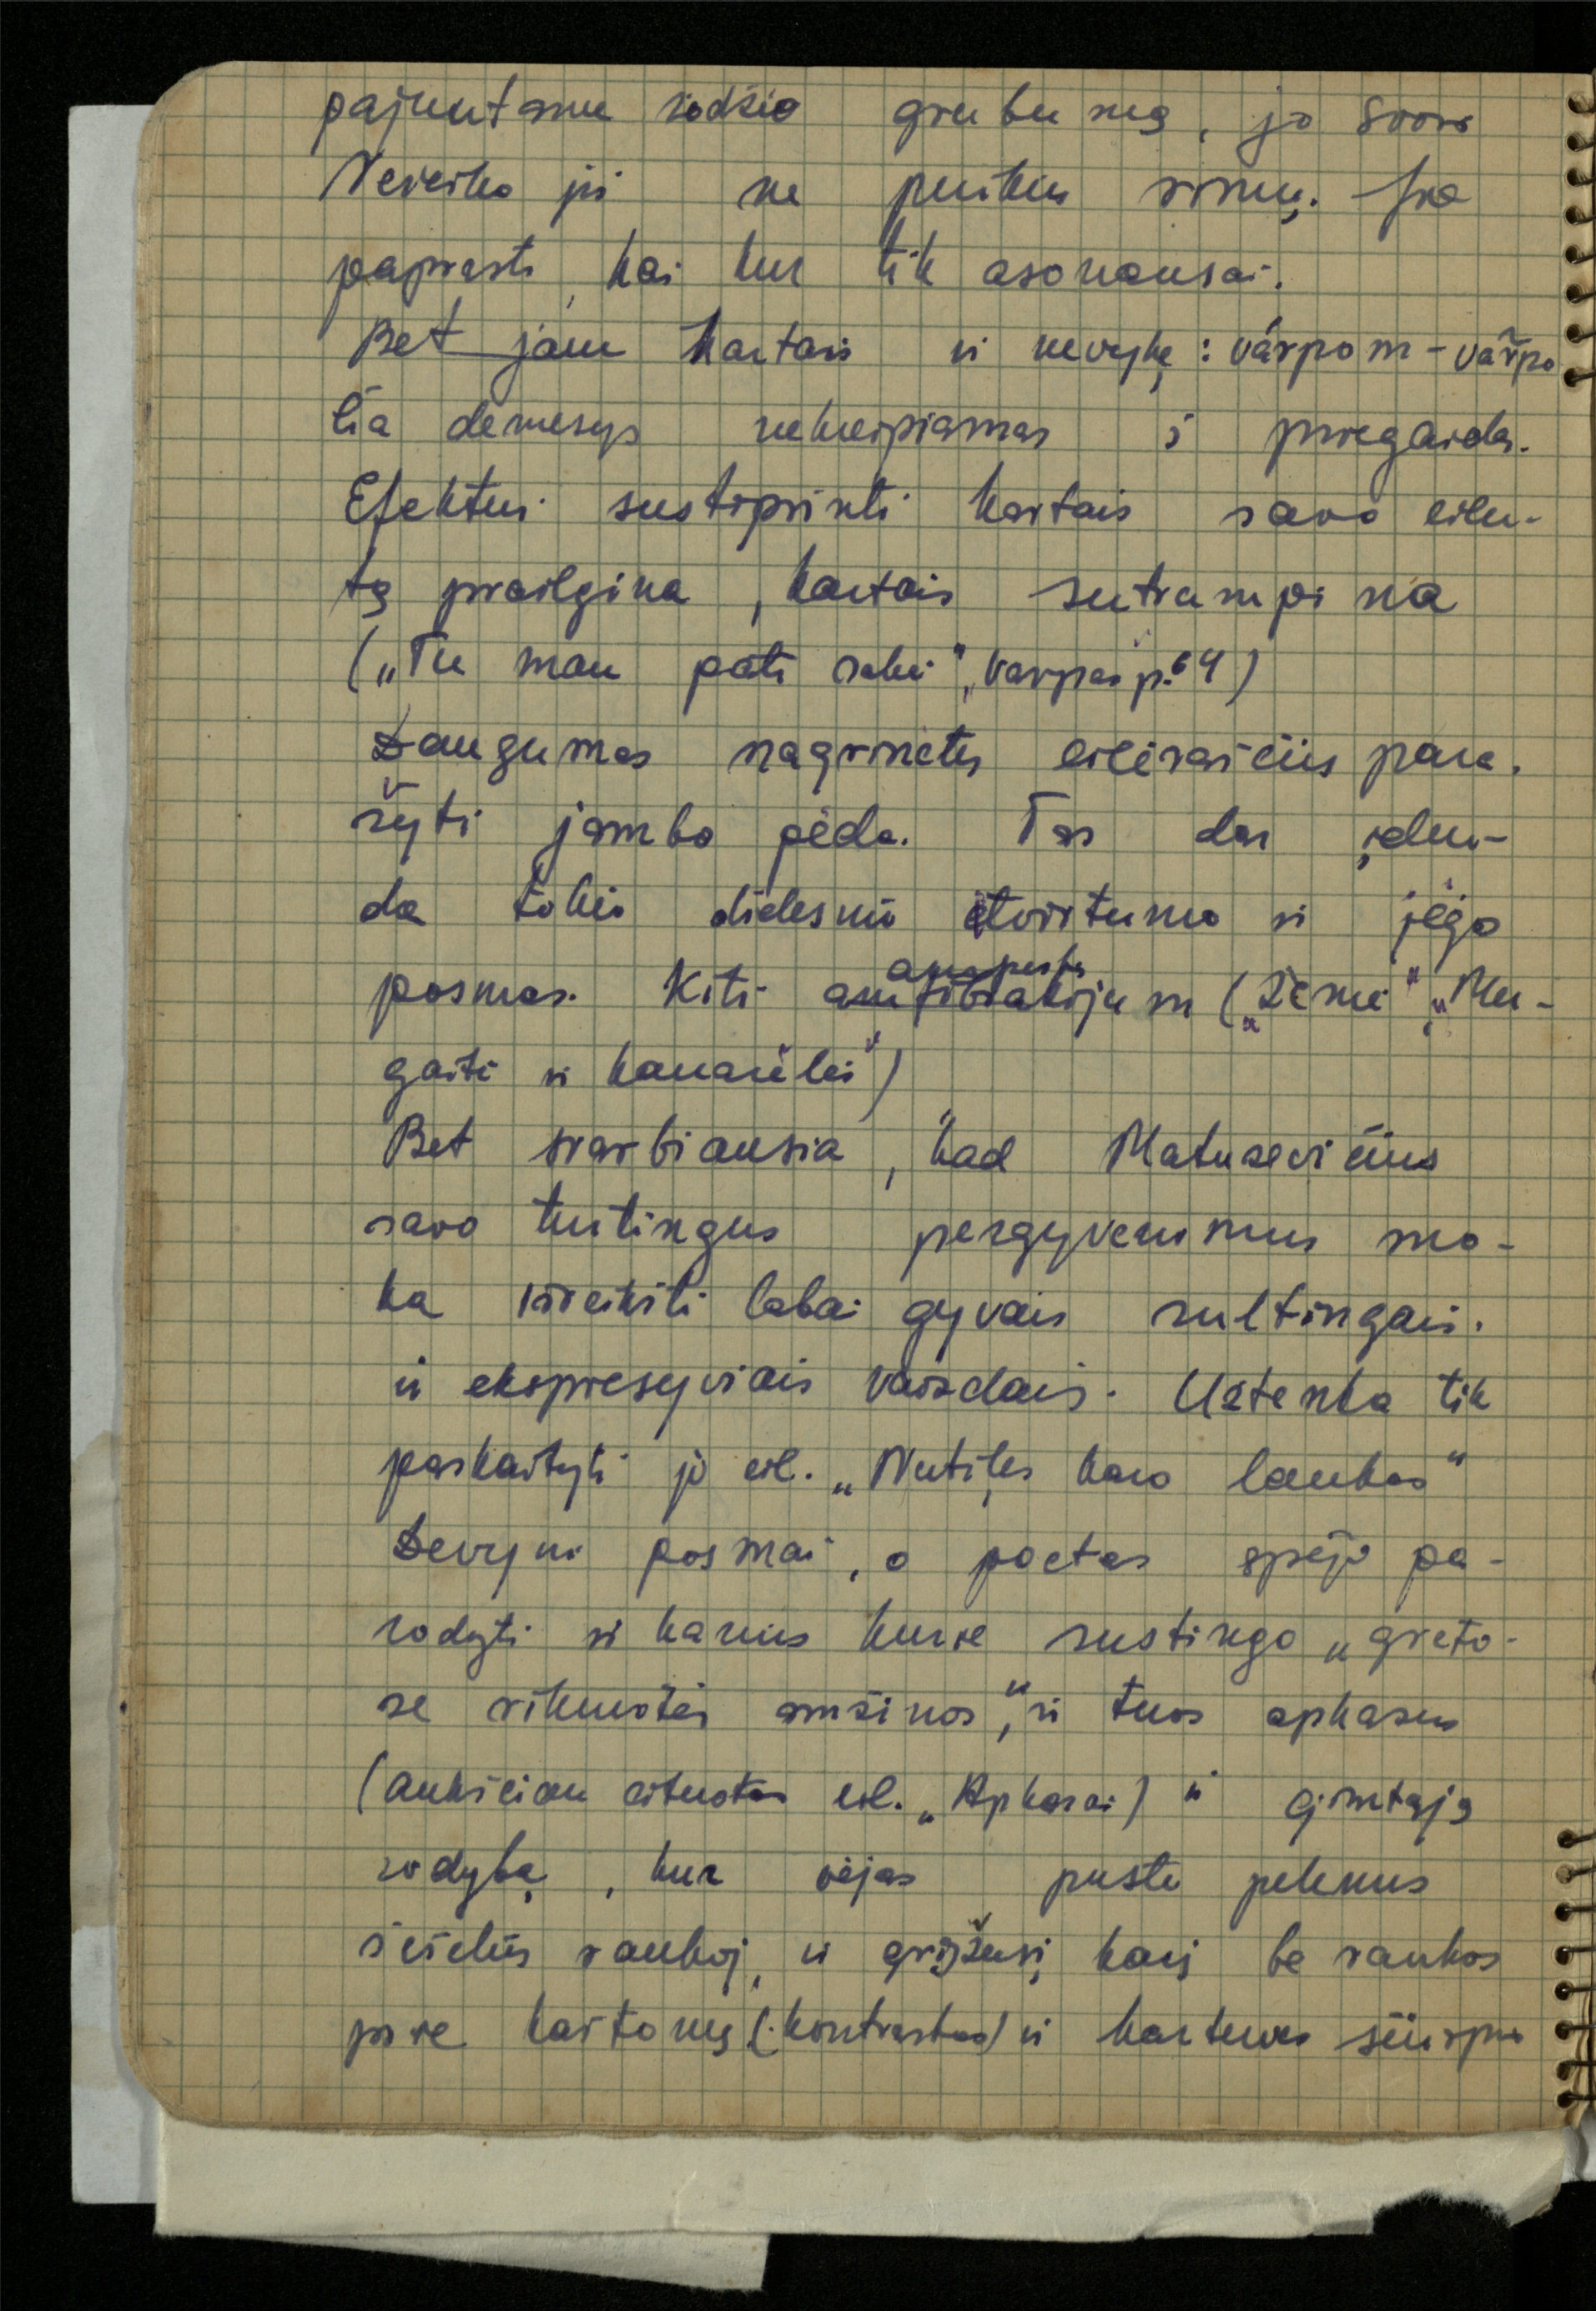 pajuntame žodžio grubumą, jo svorį
Nereikia jei ne puikių rimų. Jie
paprasti, kai kur tik asonansai.
Bet jam kartais ir nevykę: várpom - vařpo
Čia dėmesys nekreipiamas į priegaidę.
Efektui sustiprinti kartais savo eilu-
tę prailgina, kartais sutrumpina
(„Tu man pati sakei", „Varpai p. 64)
Daugumas nagrinėtų eilėraščių para-
šyti jambo pėda. Tas dar įduo-
da tokio didesnio tvirtumo ir jėgo
posmas. Kiti amfibrakijum („Žemė" „Mer-
gaitė ir kanarėlės")
Bet svarbiausia, kad Matuzevičius
savo turtingus pergyvenimus mo-
ka išreikšti labai gyvais sultingais.
ir ekspresyviais vaizdais. Užtenka tik
paskaityti jo eil. „Nutilęs karo laukas"
Devyni posmai, o poetas spėjo pa-
rodyti ir karius kurie sustingo „greto-
se rikiuotės amžinos", ir tuos apkasus
(Aukščiau cituotas eil. „Apkasai) ir gimtąją
sodybą, kur vėjas pusto pelenus
širdies rankoj, ir grįžusį karį be rankos
prie kartonų (kontrastas) ir karturos šiurpu